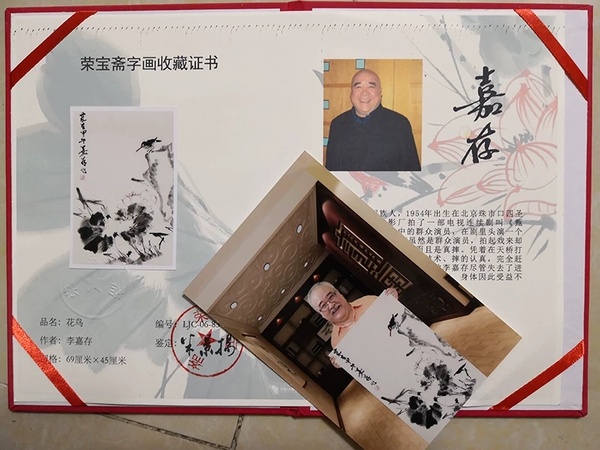 荣宝斋字画收藏证书
嘉存
族人，1954年出生在北京珠市口四圣
影厂拍了一部电视连续剧叫《甄
中的群众演员，在剧里头演一个
虽然是群众演员，拍起戏来却
而且是真摔、凭着在天桥打
技术、摔的认真，完全赶
李嘉存尽管失去了进
身体因此受益不
品名：花鸟
编号：LJC-06-83
作者：李嘉存
鉴定：
规格：69厘米×45厘米